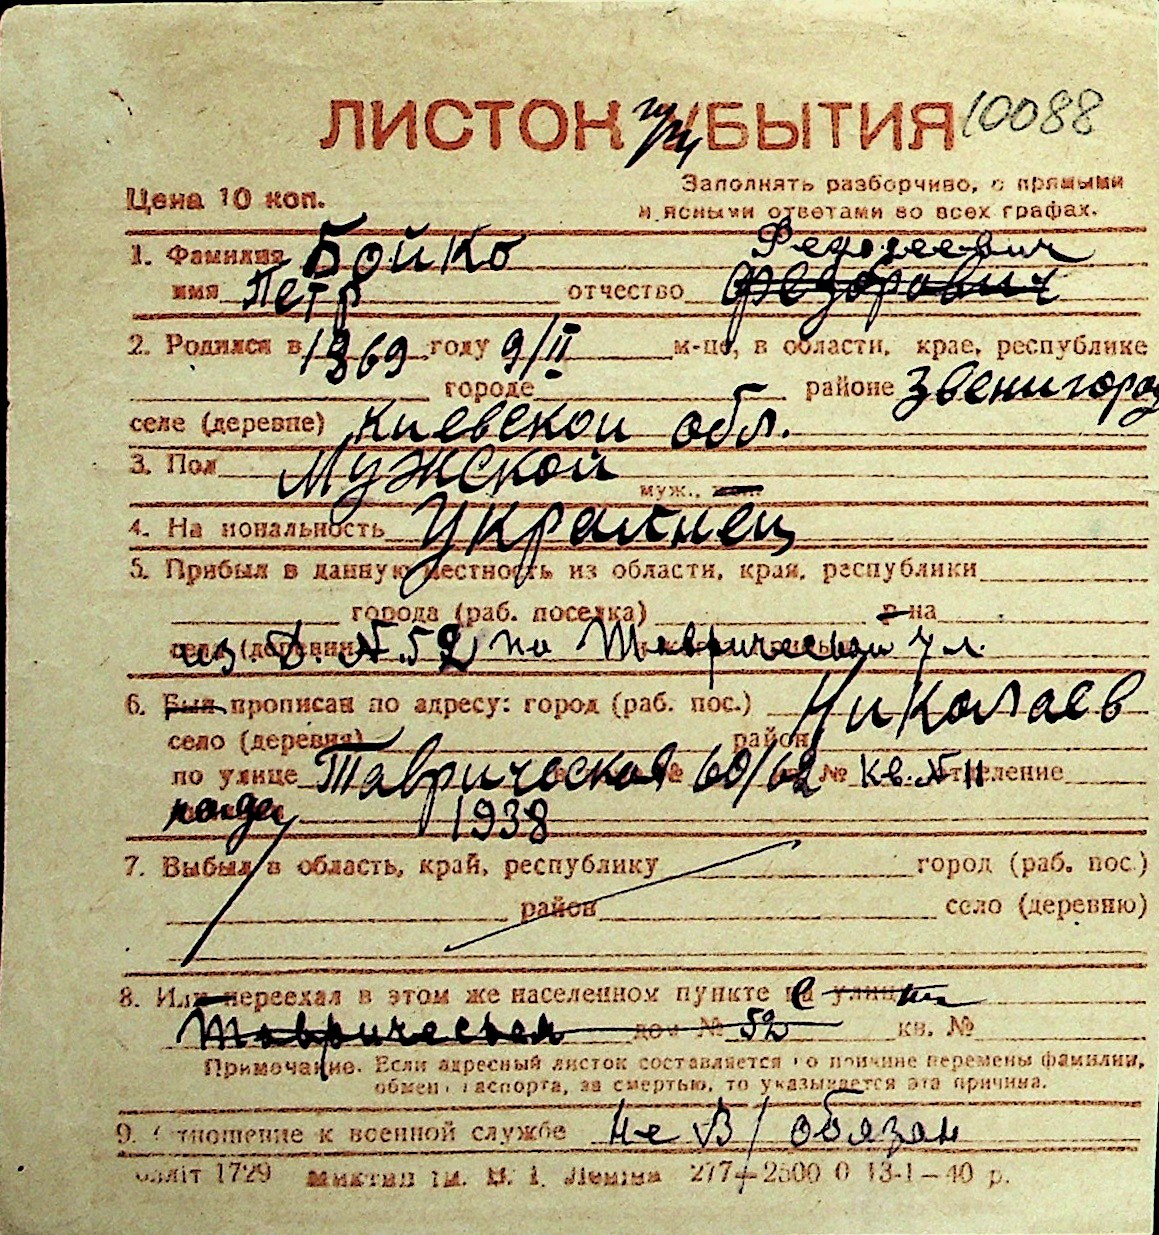 ЛИСТОК при УБЫТИЯ 10088
Цена 10 коп.
Заполнять разборчиво, с прямыми
и ясными ответами во всех графах.
1. Фамилия Бойко
имя Петр отчество Федорович
2. Родился в 1869 году 9/II м-це, в области, крае, республике
городе районе Звенигород
селе (деревне) Киевской обл.
3. Пол Мужской муж., жен.
4. Национальность Украинец
5. Прибыл в данную местность из области, края, республики
города (раб. поселка) р-на
села (деревни) из д. №.52 по Таврической ул.
6. Был прописан по адресу: город (раб. пос.) Николаев
село (деревня) район
по улице Таврическая 60/62 № Кв. № 11 отделение
1938
7. Выбыл в область, край, республику город (раб. пос.)
район село (деревню)
8. Или переехал в этом же населенном пункте на улицу
Таврическая дом № 52 кв. №
Примечание. Если адресный листок составляется по причине перемены фамилии,
обмена паспорта, за смертью, то указывается эта причина.
9. Отношение к военной службе Не В/обязан
обліт 1729 ім. Леніна 277—2500 0 13-1—40 р.